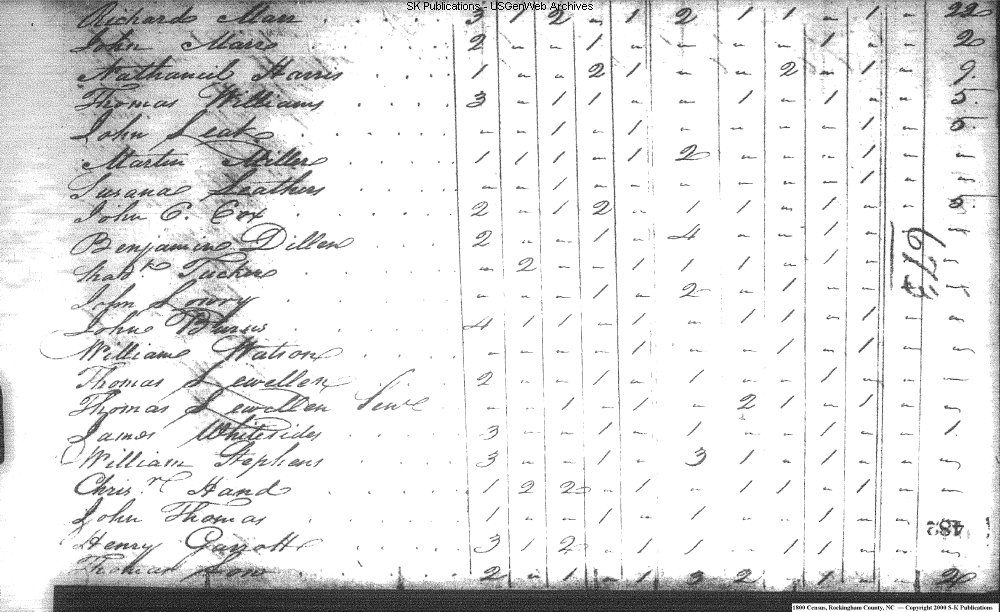 SK Publications - USGenWeb Archives
Richard Marr 3 1 2 - 1 2 1 1 - 1 - 22
John Marr 2 - - 1 - - - - 1 - - 20
Nathaniel Harris 1 - - 2 1 - - 2 - 1 - 9
Thomas Williams 3 - 1 1 - - 1 - 1 - - 5
John Leak - - 1 - 1 - - - - 1 - 5
Martin Miller 1 1 1 - 1 2 - - - 1 - -
Susana Leathers - - 1 - - - - - - 1 - -
John C. Cox 2 - 1 2 - 1 1 - 1 - - 5
Benjamin Dillen 2 - - 1 - 4 - - 1 - -
Tucker - 2 - - 1 1 1 - 1 - -
John Lowry - - - 1 - 2 - 1 - -
John Burus 4 1 1 - 1 - 1 1 - 1 - -
William Watson - - - - 1 - - 1 - 1 - -
Thomas Lewellen 2 - - 1 - 1 - - 1 - -
Thomas Lewellen - - 1 - 1 - 2 1 - 1 - -
James Whitesides 3 - - 1 - 1 - - 1 - - 1
William Stephens 3 - - 1 - 3 1 - 1 - - -
Chris.r Hand 1 2 2 - 1 - 1 1 - 1 - -
John Thomas 1 - - 1 - 1 - - 1 - -
Henry Garrott 3 1 2 - 1 1 - 1 1 - -
Thomas 2 - 1 - 1 3 2 - 1 - - 20
482
1800 Census, Rockingham County, NC — Copyright 2000 S-K Publications